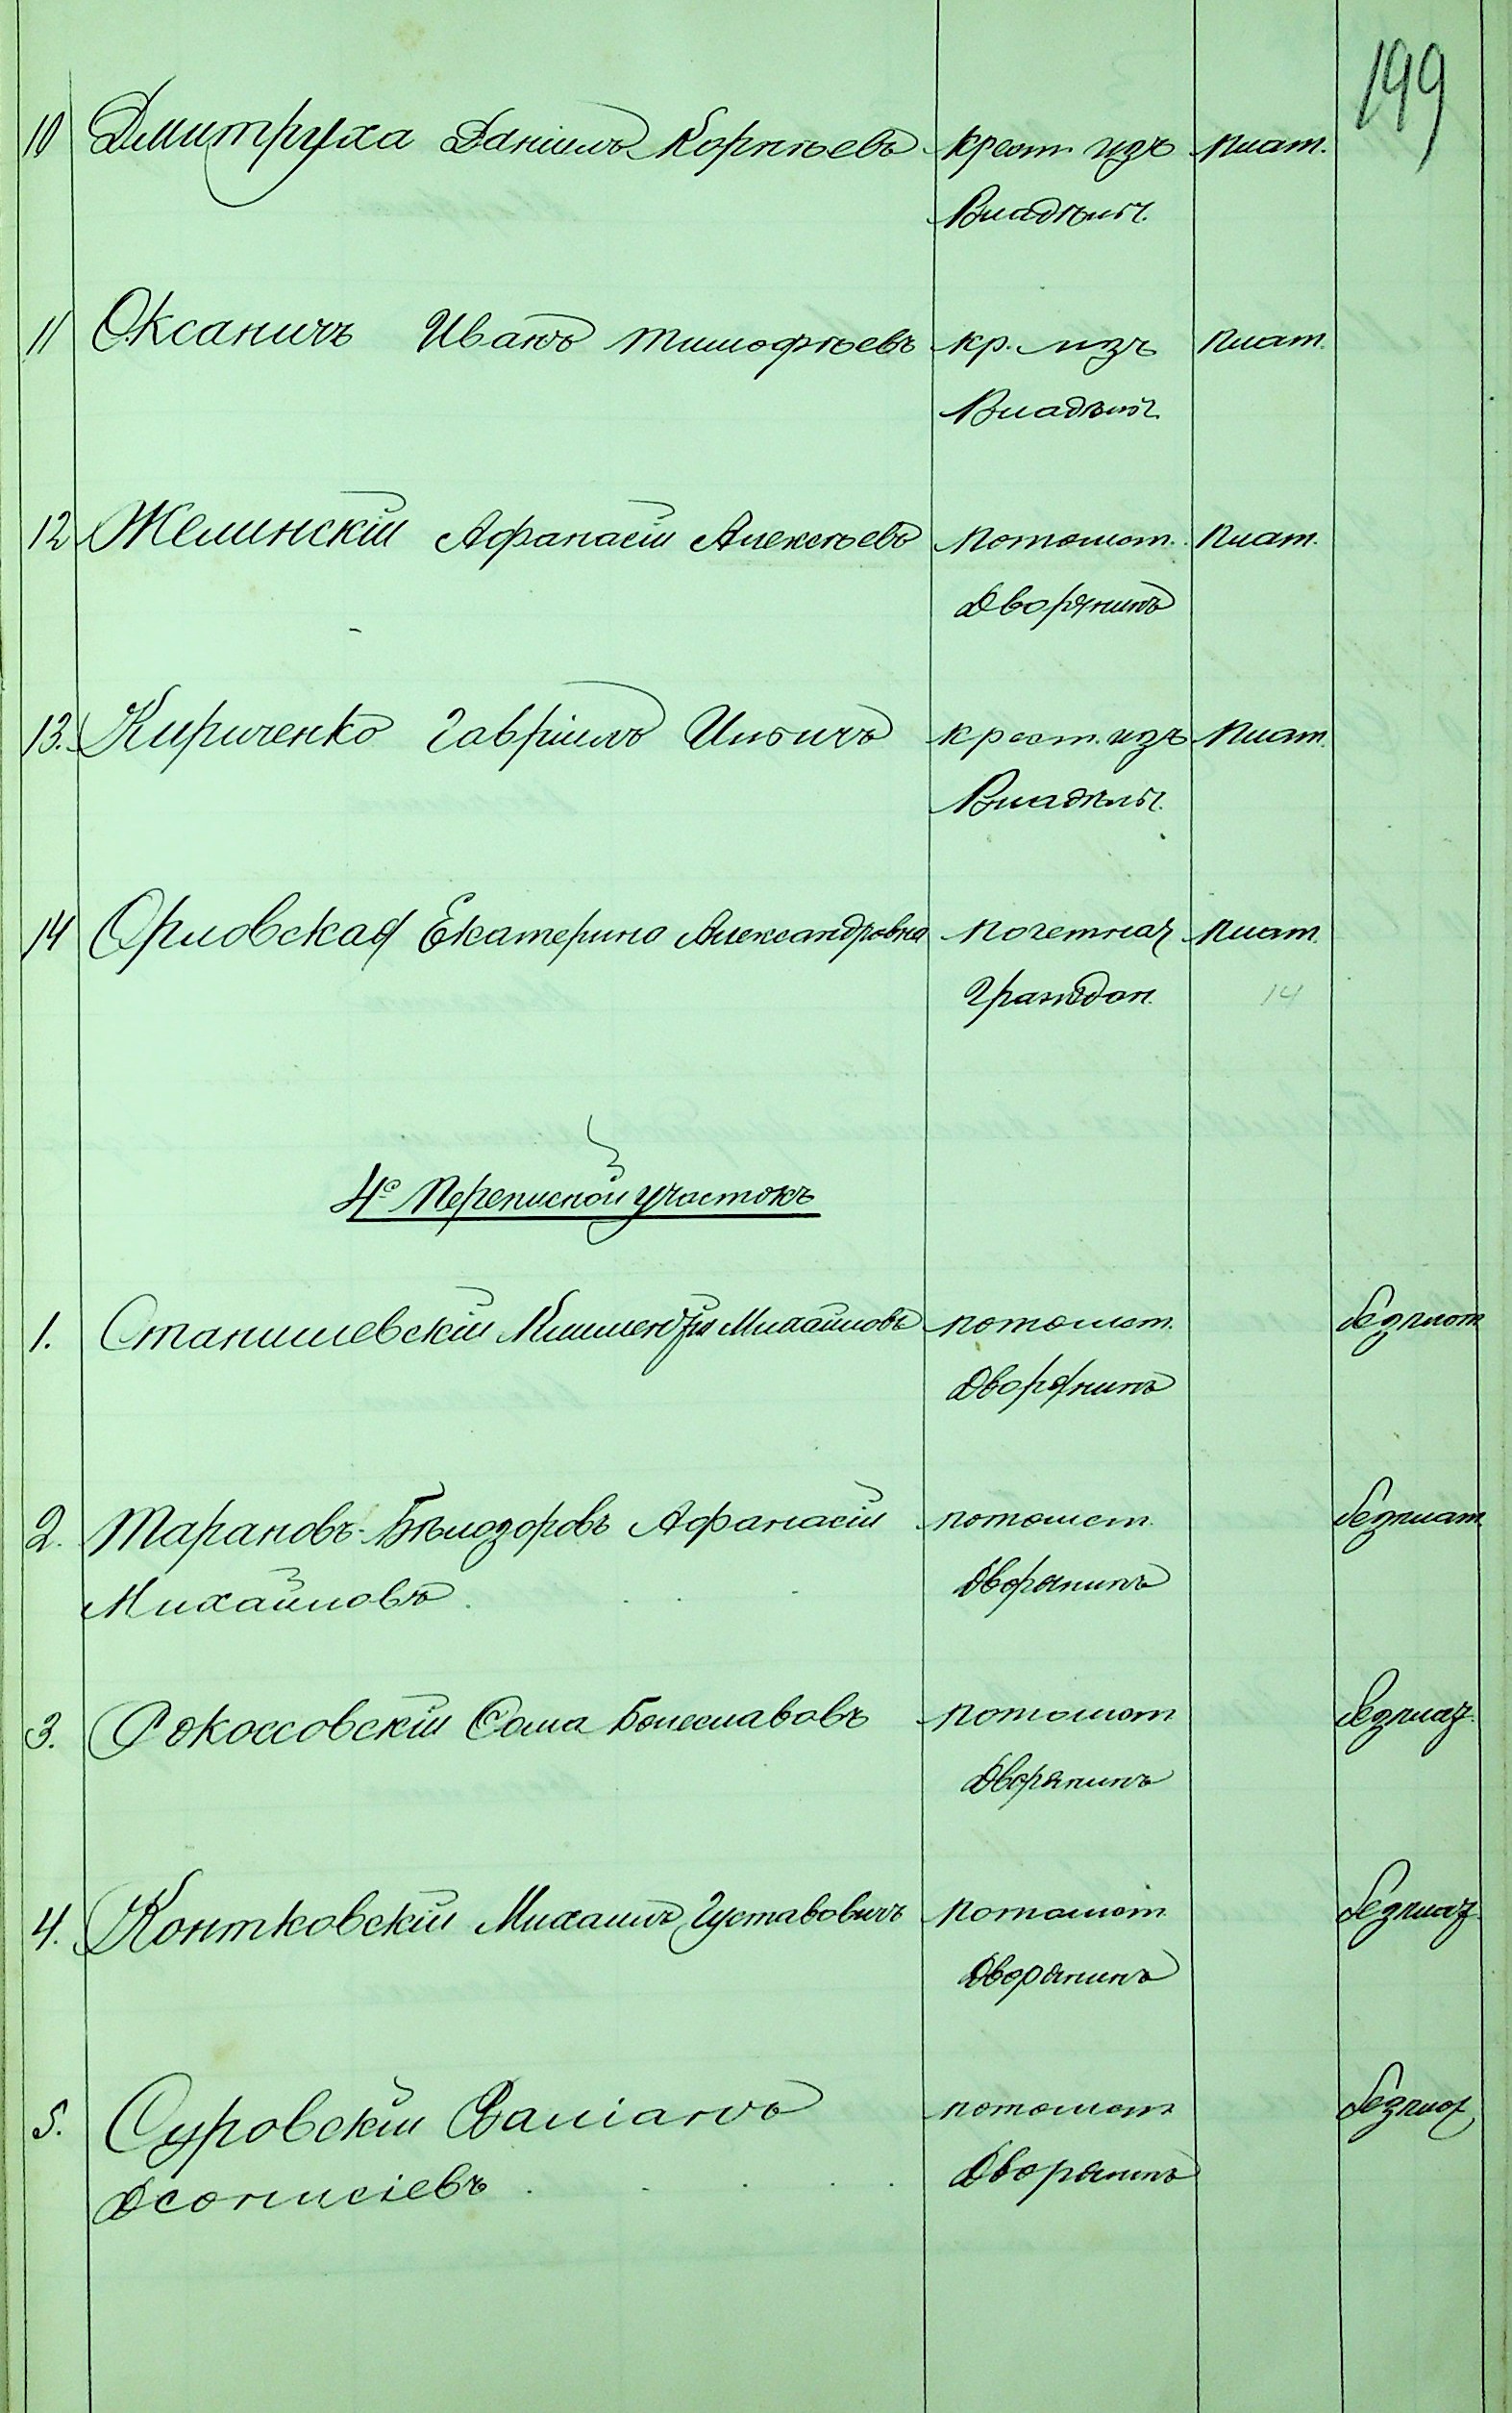 199
10 Дмитруха Даніилъ Корнѣевъ крест. изъ плат.
Владѣльч.
11 Оксаничъ Иванъ Тимофѣевъ кр. изъ плат.
Владѣльч.
12 Желинскій Афанасій Алексѣевъ потомст. плат.
Дворянинъ
13. Кириченко Гавріилъ Ильичъ крест. изъ плат.
Владѣльч.
14 Орловская Екатерина Александровна почетная плат.
Граждан. 14
4й Переписной участокъ
1. Станишевскій Михайловъ потомст. безплат.
Дворянинъ
2. Тарановъ-Бѣлозоровъ Афанасій потомст. безплат.
Михайловъ Дворянинъ
3. Рокоссовскій Болеславовъ потомст. безплат.
Дворянинъ
4. Контковскій Михаилъ Густавовичъ потомст. безплат.
Дворянинъ
5. Суровскій потомст. безплат.
Діонисіевъ Дворянинъ